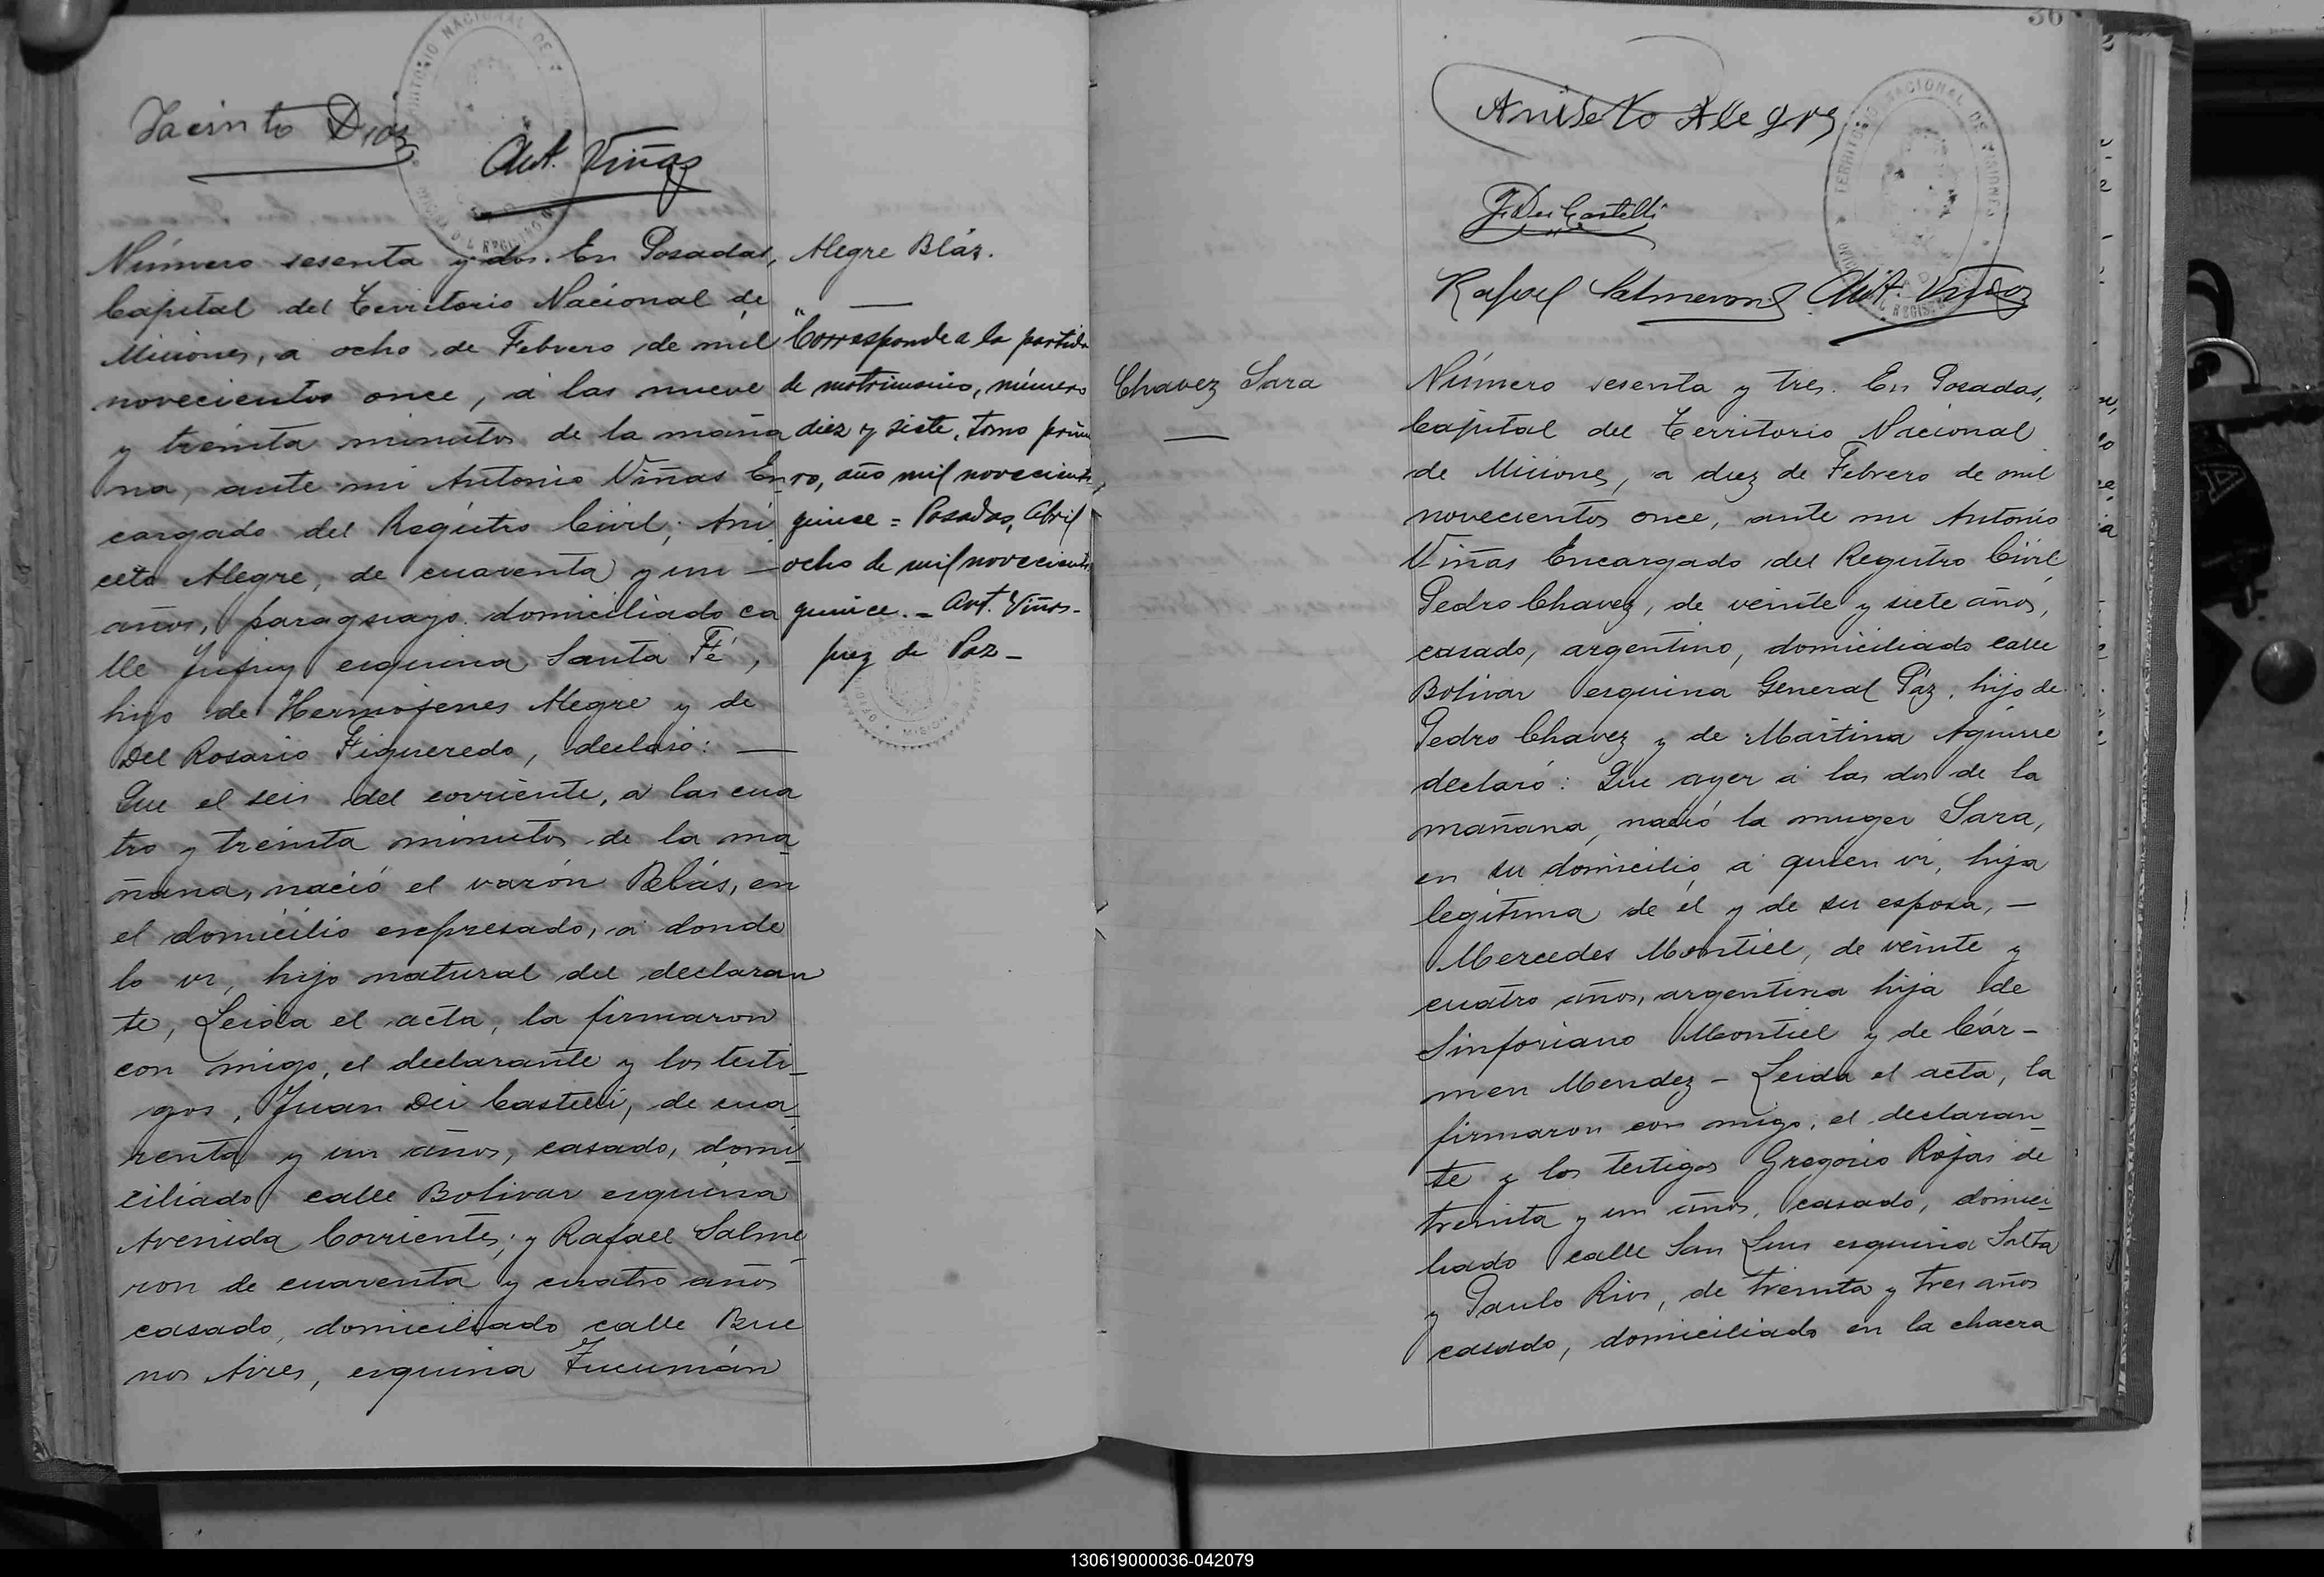 Jacinto Dias
Ant. Viñas
Número sesenta y dos. En Posadas,
Capital del Territorio Nacional de
Misiones, a ocho de Febrero de mil
novecientos once, a las nueve
y treinta minutos de la maña
na, ante mi Antonio Viñas En
cargado del Registro Civil, Ani
ceto Alegre, de cuarenta y un —
años, paraguayo domiciliado ca
lle Jujuy esquina Santa Fé,
hijo de Hermojenes Alegre y de
Del Rosario Figueredo, declaró: —
Que el seis del corriente, a las cua
tro y treinta minutos de la ma
ñana, nació el varón Blás, en
el domicilio expresado, a donde
lo vi, hijo natural del declaran
te, Leida el acta, la firmaron
con migo, el declarante y los testi
gos, Juan Dei Castelli, de cua
renta y un años, casado, domi
ciliado calle Bolivar esquina
Avenida Corrientes; y Rafael Salme
ron de cuarenta y cuatro años
casado, domiciliado calle Bue
nos Aires, esquina Tucumán
Alegre Blás.
"—
Corresponde a la partida
de matrimonio, número
diez y siete, tomo prime
ro, año mil novecientos
quince = Posadas, Abril
ocho de mil novecientos
quince. - Ant. Viñas -
juez de Paz -
MISIONES
36
Aniseto Alegre
TERRITORIO NACIONAL DE MISIONES
J. Dei Castelli
Rafael Salmeron Ant. Viñas
Chavez Sara
—
Número sesenta y tres. En Posadas,
Capital del Territorio Nacional
de Misiones, a diez de Febrero de mil
novecientos once, ante mi Antonio
Viñas Encargado del Registro Civil,
Pedro Chavez, de veinte y siete años,
casado, argentino, domiciliado calle
Bolivar esquina General Páz, hijo de
Pedro Chavez y de Martina Aguirre
declaró: Que ayer a las dos de la
mañana, nació la muger Sara,
en su domicilio a quien vi, hija
legítima de él y de su esposa, —
Mercedes Montiel, de veinte y
cuatro años, argentina hija de
Sinforiano Montiel y de Cár-
men Mendez - Leida el acta, la
firmaron con migo, el declaran
te y los testigos Gregorio Rojas de
treinta y un años, casado, domici
liado calle San Luis esquina Salta
y Paulo Rios, de treinta y tres años
casado, domiciliado en la chacra
130619000036-042079